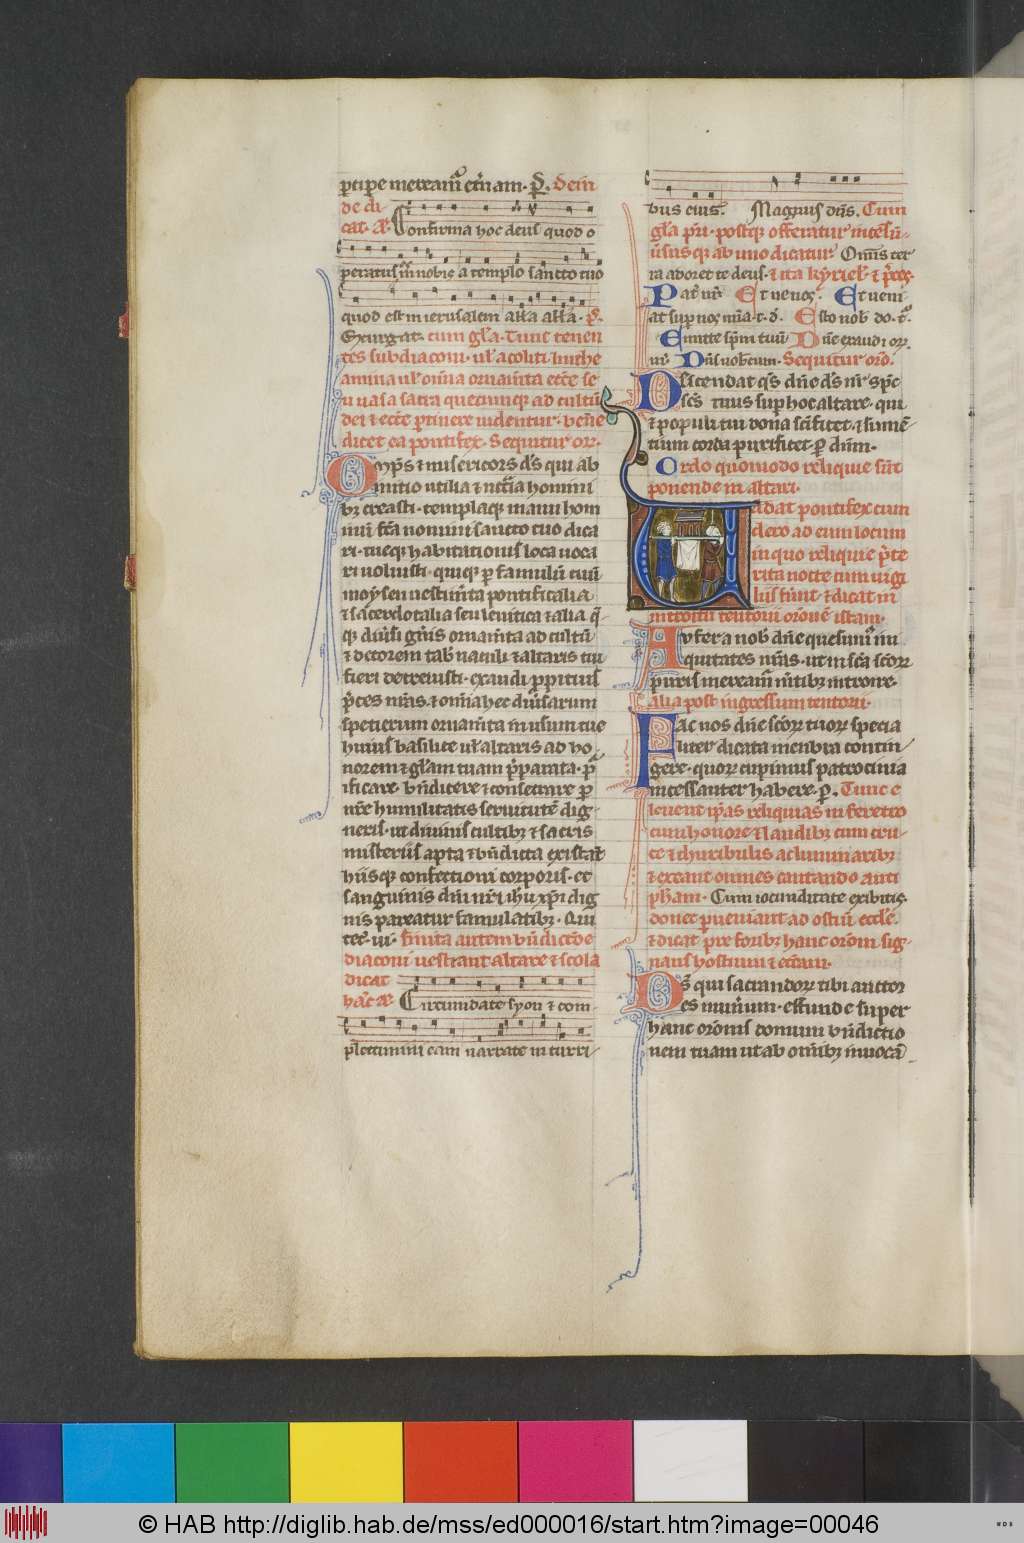 ꝑtiꝑe mereamᷣ et̾nam. P̲. Dein
de di
cat. añ. Confirma hoc deus quod o
peratus in nobis a templo sancto tuo
quod est in ierusalem alła alła. p̃.
Exurgat. cum gła. Tunc tenen
tes subdiaconi. uł acoliti. linthe
amina uł om̃ia ornam̃ta ecc̃e se
u uasa sacra quecumque ad cultũ
dei ⁊ ecc̃e ꝑtinere uidentur. bene
dicet ea pontifex. Sequitur or̃.
Om̃ps ⁊ misericors d̃s qui ab
initio utilia ⁊ necc̃ia homini
bꝫ creasti. templaque manu hom
inũ fc̃a nomini sancto tuo dica
ri. tueque habitationis loca uoca
ri uoluisti. quique ꝑ famulũ tuũ
moysen uestim̃ta pontificalia
⁊ sacerdotalia seu leuitica ⁊ alia q̃
que diũsi gñis ornam̃ta ad cultũ
⁊ decorem tab̃naculi ⁊ altaris tui
fieri decreuisti. exaudi ꝓpitius
p̃ces nr̃as. ⁊ om̃ia hec diũsarum
specierum ornam̃ta in usum tue
huius basilice uł altaris ad ho
norem ⁊ głam tuam p̃parata. pᷣ
ificare. bñdicere ⁊ consecrare ꝑ
nr̃e humilitatis seruitutẽ dig
neris. ut diuinis cultibꝫ ⁊ sacris
misteriis apta ⁊ bñdicta existãt
hiisque confectioni corporis. et
sanguinis dñi nr̃i ih̃u xp̃i dig
nis pareatur famulatibꝫ. Qui
tec̃. ui. finita autem bñdictõe
diaconi uestiant altare ⁊ scola
dicat
hãc añ. Circumdate syon ⁊ com
plectimini eam narrate in turri
bus eius. Magnus dñs. Cum
gła pr̃i. postque offeratur incensũ
ũsusque ab uno dicatur Omis ter
ra adoret te deus. ⁊ ita kyriel. ⁊ p̃ces.
Patr̃ nr̃ Et ne nos. Et ueni
at suꝑ nos mĩa. t. d. Esto nob̃ do. t.
Emitte sp̃m tuũ Dñe exaudi or̃.
m̃. Dñs uobcum. Sequitur or̃o.
Descendat q̃s dñe d̃s nr̃ sp̃c
sc̃s tuus suꝑ hoc altare. qui
⁊ populi tui dona sc̃ificet. ⁊ sumẽ
tium corda purificet. ꝑ dñm.
Ordo quomodo reliquie sũt
ponende in altari.
Uadat pontifex cum
clero ad eum locum
in quo reliquie p̃te
rita nocte cum uigi
liis fuer̃nt. ⁊ dicat in
introitu tentorii orõnẽ istam.
Aufer a nob̃ dñe quesumᷣ ini
quitates nr̃as. ut in sc̃a sc̃orꝝ
puris mereamᷣ m̃tibꝫ introire.
alia post ingressum tentorii.
Fac nos dñe sc̃orꝝ tuorꝝ specia
liter dicata menbra contin
gere. quorꝝ cupimus patrocinia
incessanter habere. ꝑ. Tunc e
leuent ip̃as reliquias in feretro
cum honore ⁊ laudibꝫ cum cru
ce ⁊ thuribulis ac luminaribꝫ
⁊ exeant omnes cantando anti
ph̃am. Cum iocunditate exibitis.
donec ꝑueniant ad ostiũ eccłe.
⁊ dicat pre foribꝫ hanc or̃om sig
nans hostium ⁊ eccłiam.
Ds̃ qui sacrandorꝝ tibi auctor
es munerum. effunde super
hanc orõnis domum bñdictio
nem tuam ut ab om̃ibꝫ inuocã
© HAB http://diglib.hab.de/mss/ed000016/start.htm?image=00046